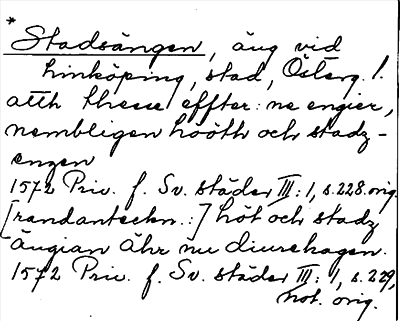 *
Stadsängen, äng vid
Linköping, stad, Österg. l.
atth thesse effter: ne engier,
nembligen hööth och stadz-
engen
1572 Priv. f. Sv. städer III: 1, s. 228. orig.
[randanteckn.:] höt och stadz
ängian ähr nu diurehagen.
1572 Priv. f. Sv. städer III: 1, s. 229,
not. orig.